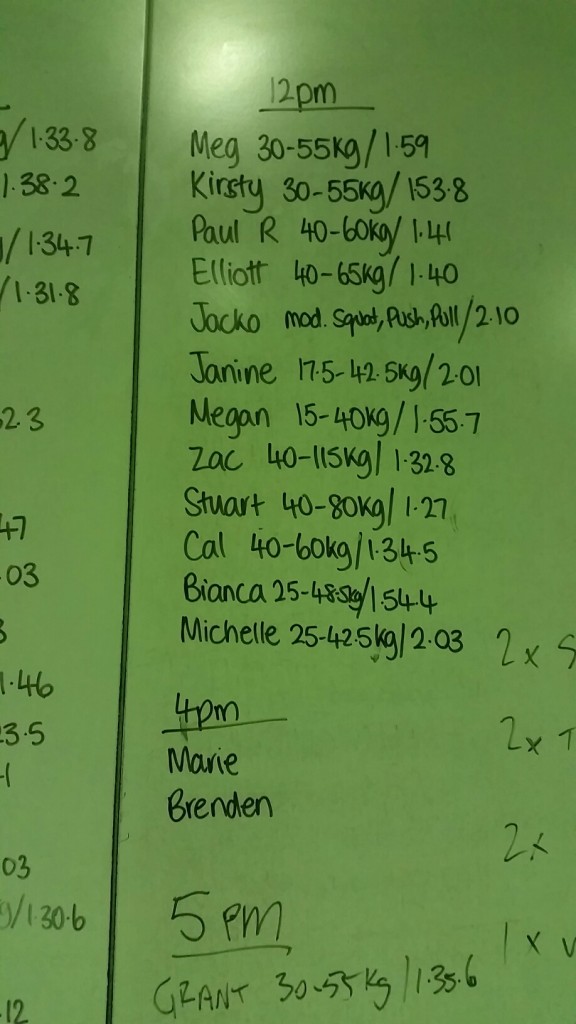 12pm
Meg 30-55kg/1.59
Kirsty 30-55kg/1.53.8
Paul R 40-60kg/1.41
Elliott 40-65kg/1.40
Jacko mod. Squat, Push, Pull/2.10
Janine 17.5-42.5kg/2.01
Megan 15-40kg/1.55.7
Zac 40-115kg/1.32.8
Stuart 40-80kg/1.27
Cal 40-60kg/1.34.5
Bianca 25-48.5kg/1.54.4
Michelle 25-42.5kg/2.03
4pm
Marie
Brenden
5 PM
GRANT 30-55kg/1.35.6
g/1.33.8
1.38.2
/1.34.7
/1.31.8
2.3
47
.03
1.46
23.5
03
/1.30.6
.12
2x S
2x T
2x
1x